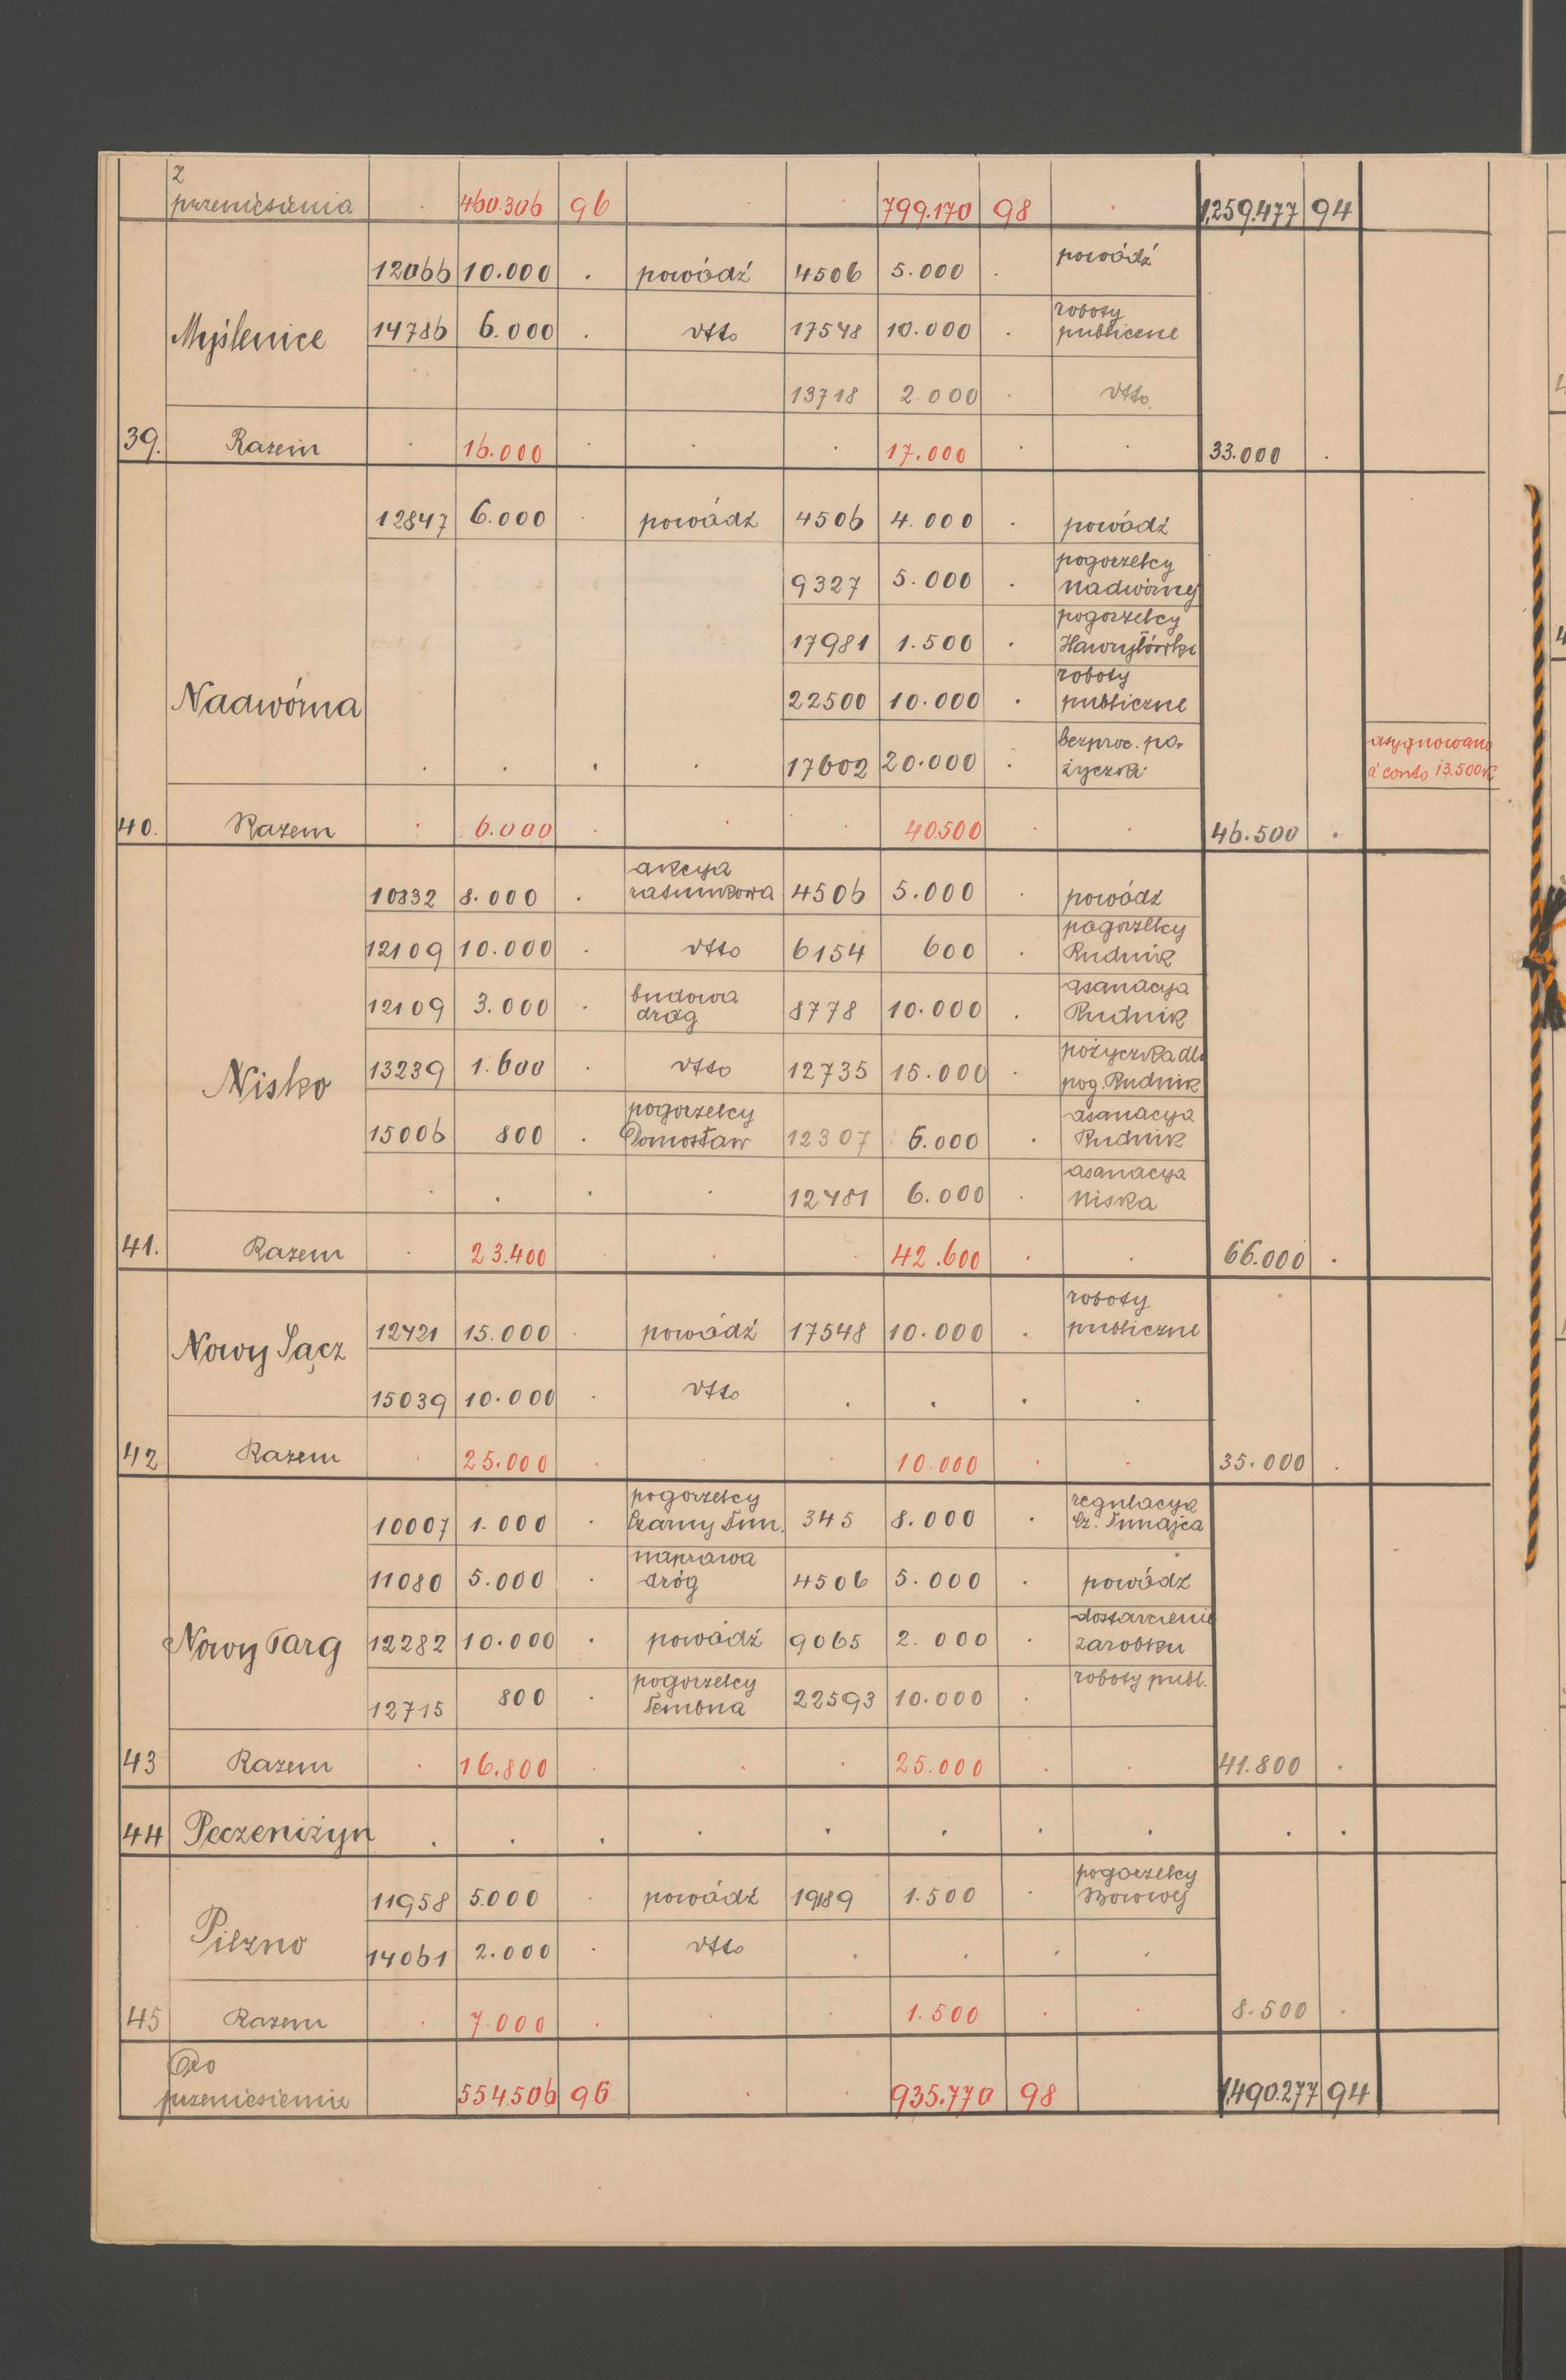 z
przeniesienia . 460.306 96 . . 799.170 98 . 1,259.477 94
12066 10.000 . powódź 4506 5.000 . powódź
Myślenice 14786 6.000 . dtto 17548 10.000 . roboty
publiczne
13718 2.000 . dtto
39. Razem . 16.000 . . . 17.000 . . 33.000 .
12847 6.000 . powódź 4506 4.000 . powódź
9327 5.000 . pogorzelcy
Nadwórnej
17981 1.500 . pogorzelcy
Hawryłówka
Nadwórna 22500 10.000 . roboty
publiczne
. . . . 17602 20.000 . bezproc. po-
życzka
asygnowano
á conto 13.500 K
40. Razem . 6.000 . . . 40.500 . . 46.500 .
akcya
10832 8.000 . ratunkowa 4506 5.000 . powódź
12109 10.000 . dtto 6154 600 . pogorzelcy
Rudnik
12109 3.000 . budowa
dróg 8778 10.000 . asanacya
Rudnik
Nisko 13239 1.600 . dtto 12735 15.000 . pożyczka dla
pog. Rudnik
15006 800 . pogorzelcy
Domostaw 12307 6.000 . asanacya
Rudnik
. . . . 12481 6.000 . asanacya
Niska
41. Razem . 23.400 . . . 42.600 . . 66.000 .
Nowy Sącz 12421 15.000 . powódź 17548 10.000 . roboty
publiczne
15039 10.000 . dtto . . . .
42 Razem . 25.000 . . . 10.000 . . 35.000 .
10007 1.000 . pogorzelcy
Czarny Dun. 345 8.000 . regulacya
Cz. Dunajca
11080 5.000 . naprawa
dróg 4506 5.000 . powódź
Nowy Targ 12282 10.000 . powódź 9065 2.000 . dostarczenie
zarobku
12715 800 . pogorzelcy
22593 10.000 . roboty publ.
43 Razem . 16.800 . . . 25.000 . . 41.800 .
44 Peczeniżyn . . . . . . . . . .
11958 5.000 . powódź 19189 1.500 . pogorzelcy
Borowej
Pilzno 14061 2.000 . dtto . . . .
45 Razem . 7.000 . . . 1.500 . . 8.500 .
Do
przeniesienia 554.506 96 . . 935.770 98 1,490.277 94